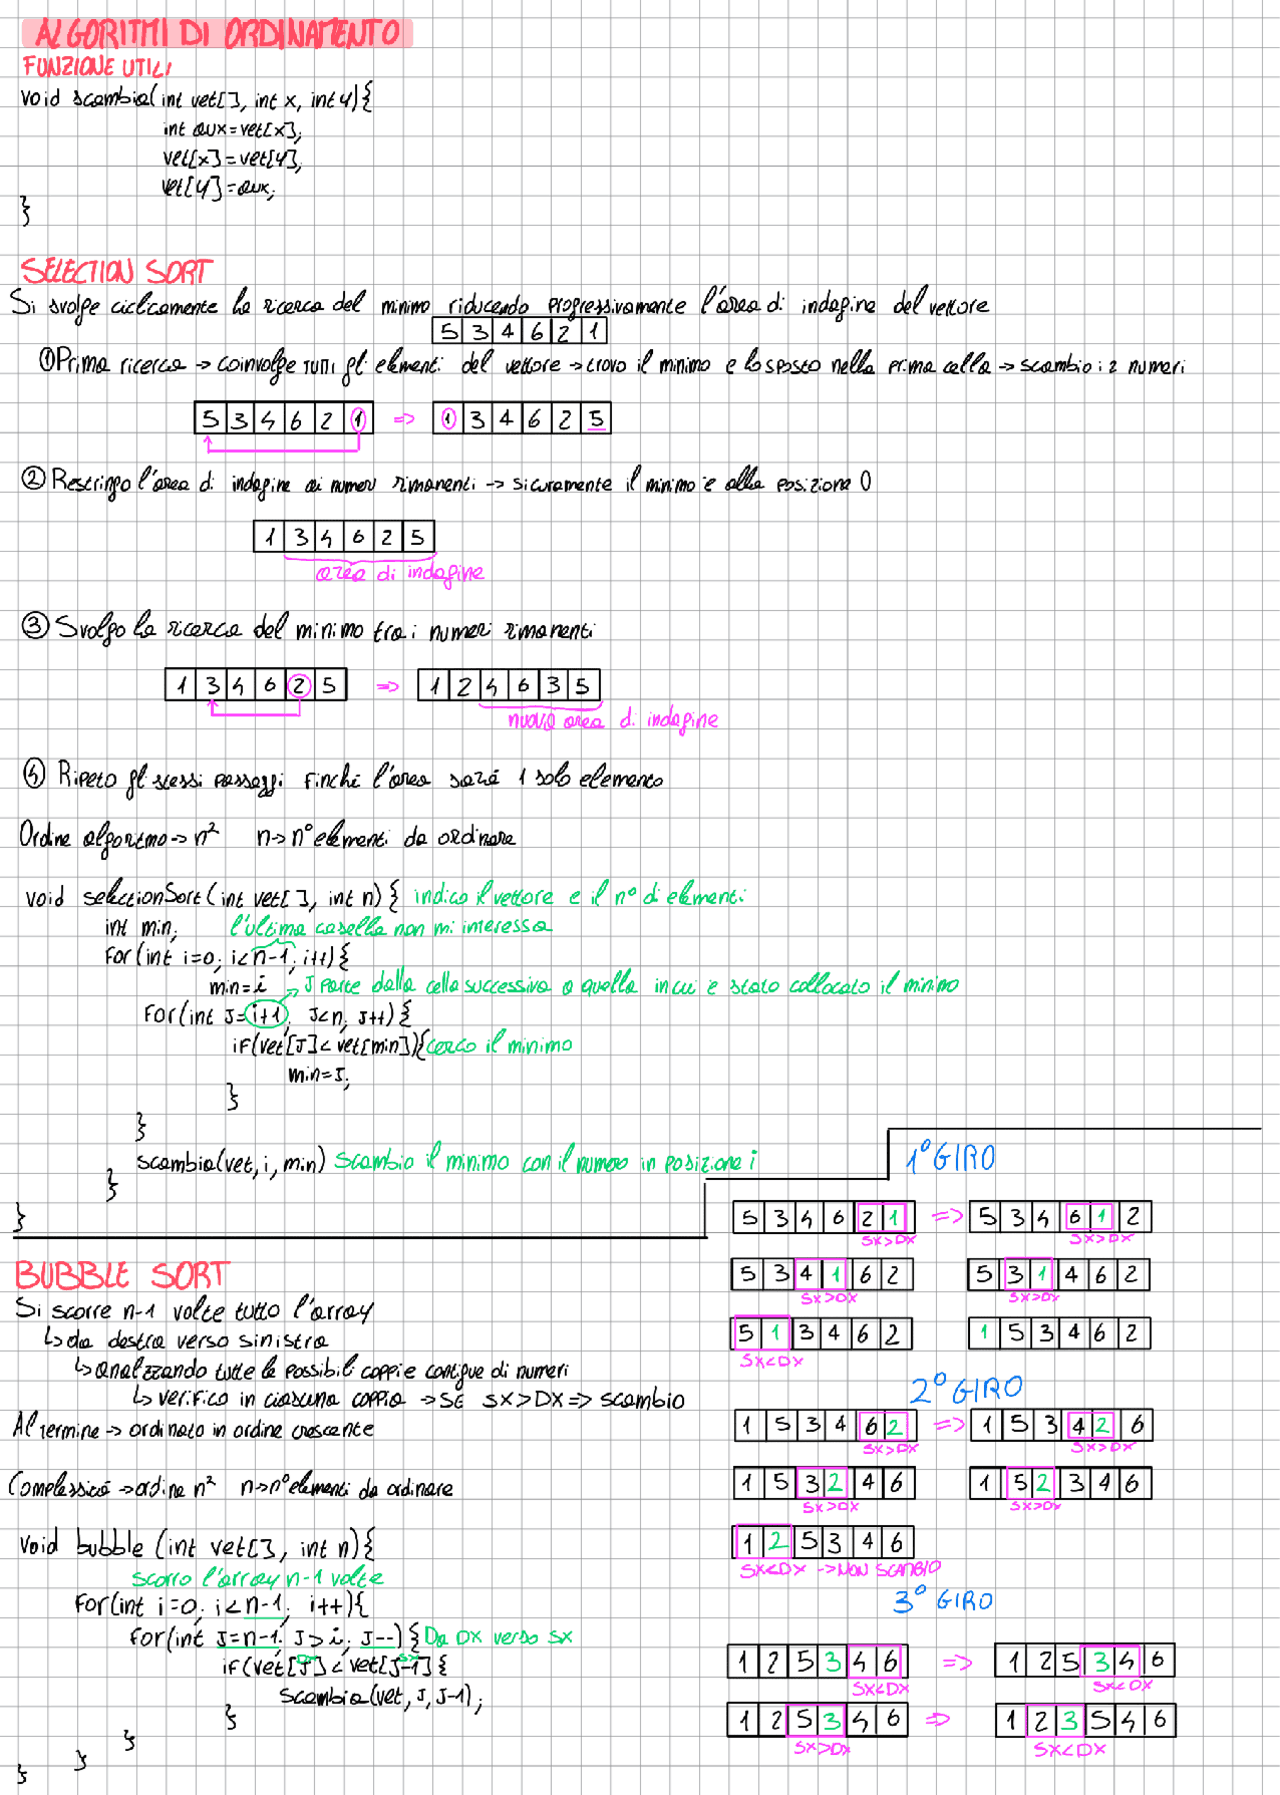 ALGORITMI DI ORDINAMENTO
FUNZIONE UTILI
void scambia(int vet[], int x, int y){
int aux=vet[x];
vet[x]=vet[y];
vet[y]=aux;
}
SELECTION SORT
Si svolge ciclicamente la ricerca del minimo riducendo progressivamente l'area di indagine del vettore
5 3 4 6 2 1
① Prima ricerca -> coinvolge tutti gli elementi del vettore -> trovo il minimo e lo sposto nella prima cella -> scambio i 2 numeri
5 3 4 6 2 1 => 1 3 4 6 2 5
② Restringo l'area di indagine ai numeri rimanenti -> sicuramente il minimo è alla posizione 0
1 3 4 6 2 5
area di indagine
③ Svolgo la ricerca del minimo tra i numeri rimanenti
1 3 4 6 2 5 => 1 2 4 6 3 5
nuova area di indagine
④ Ripeto gli stessi passaggi finché l'area sarà 1 solo elemento
Ordine algoritmo -> n² n -> n° elementi da ordinare
void selectionSort(int vet[], int n){ indico il vettore e il n° di elementi
int min; l'ultima casella non mi interessa
for(int i=0; i<n-1; i++){
min=i -> J parte dalla cella successiva a quella in cui è stato collocato il minimo
for(int J=i+1; J<n; J++){
if(vet[J]<vet[min]){ cerco il minimo
min=J;
}
}
scambia(vet, i, min) scambio il minimo con il numero in posizione i
}
}
BUBBLE SORT
Si scorre n-1 volte tutto l'array
↳ da destra verso sinistra
↳ analizzando tutte le possibili coppie contigue di numeri
↳ verifico in ciascuna coppia -> SE SX>DX => scambio
Al termine -> ordinato in ordine crescente
Complessità -> ordine n² n -> n° elementi da ordinare
void bubble (int vet[], int n){
scorro l'array n-1 volte
for(int i=0; i<n-1; i++){
for(int J=n-1; J>i; J--){ Da DX verso SX
DX SX
if(vet[J]<vet[J-1]{
scambia(vet, J, J-1);
}
}
}
}
1° GIRO
5 3 4 6 2 1 => 5 3 4 6 1 2
SX>DX SX>DX
5 3 4 1 6 2 5 3 1 4 6 2
SX>DX SX>DX
5 1 3 4 6 2 1 5 3 4 6 2
SX<DX
2° GIRO
1 5 3 4 6 2 => 1 5 3 4 2 6
SX>DX SX>DX
1 5 3 2 4 6 1 5 2 3 4 6
SX>DX SX>DX
1 2 5 3 4 6
SX<DX -> NON SCAMBIO
3° GIRO
1 2 5 3 4 6 => 1 2 5 3 4 6
SX<DX SX<DX
1 2 5 3 4 6 => 1 2 3 5 4 6
SX>DX SX<DX